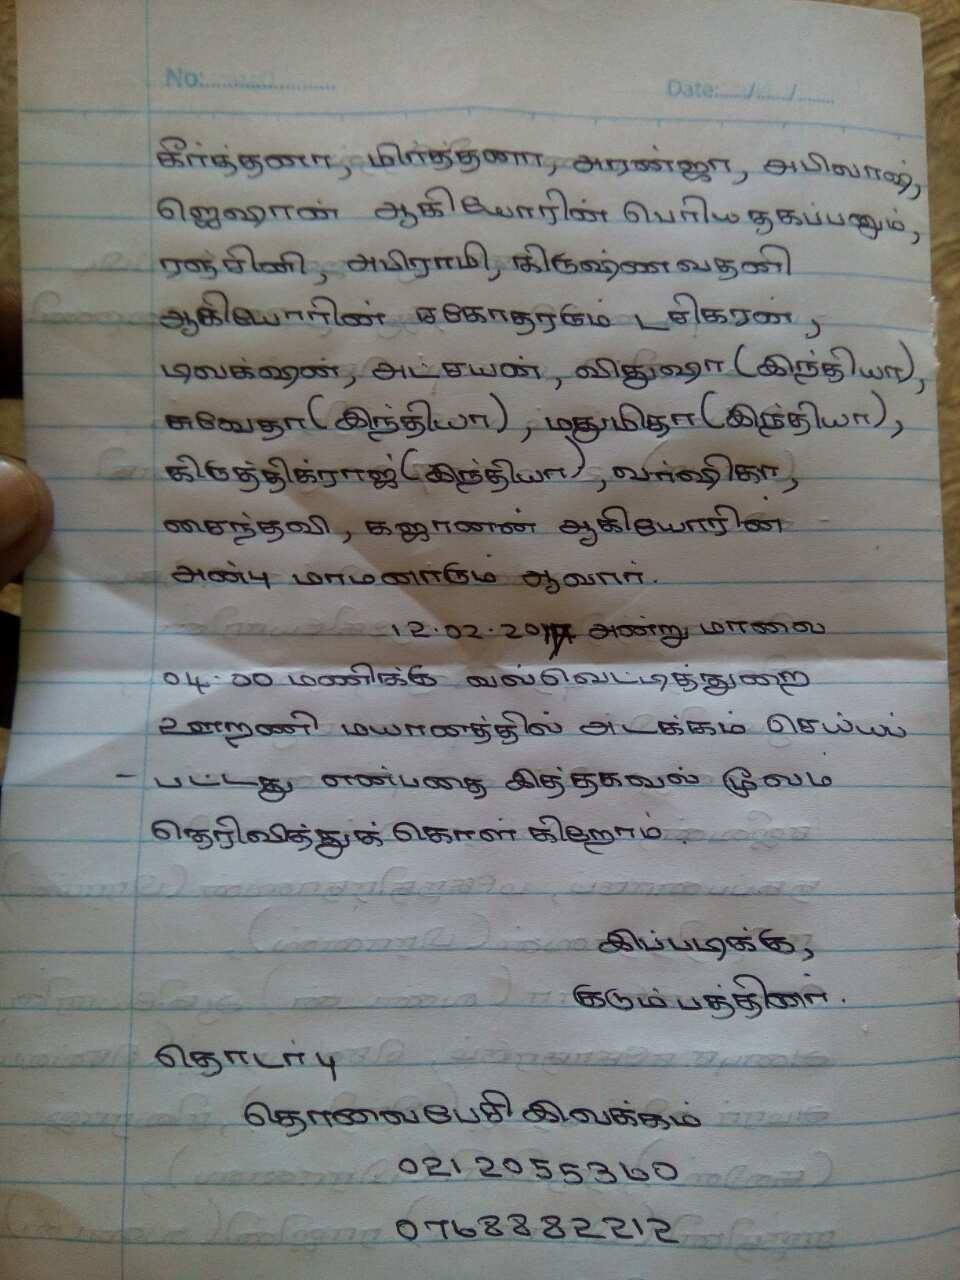 No:........................
Date:...../....../.......
கீர்த்தனா, மிர்த்தனா, அரண்ஜா, அபிலாஷ்,
ஜெஷான் ஆகியோரின் பெரிய தகப்பனும்,
ரஞ்சினி, அபிராமி, கிருஷ்ணவதனி
ஆகியோரின் சகோதரரும் டசிகரன்,
டிலக்ஷன், அட்சயன், விதுஷா (இந்தியா),
சுவேதா (இந்தியா), மதுமிதா (இந்தியா),
கிருத்திக்ராஜ் (இந்தியா), வர்ஷிகா,
சைந்தவி, கஜானன் ஆகியோரின்
அன்பு மாமனாரும் ஆவார்.
12.02.2017 அன்று மாலை
04.00 மணிக்கு வல்வெட்டித்துறை
ஊறணி மயானத்தில் அடக்கம் செய்யப்
- பட்டது என்பதை இத்தகவல் மூலம்
தெரிவித்துக் கொள் கிறோம்.
இப்படிக்கு,
குடும்பத்தினர்.
தொடர்பு
தொலைபேசி இலக்கம்
021 2055360
0768882212